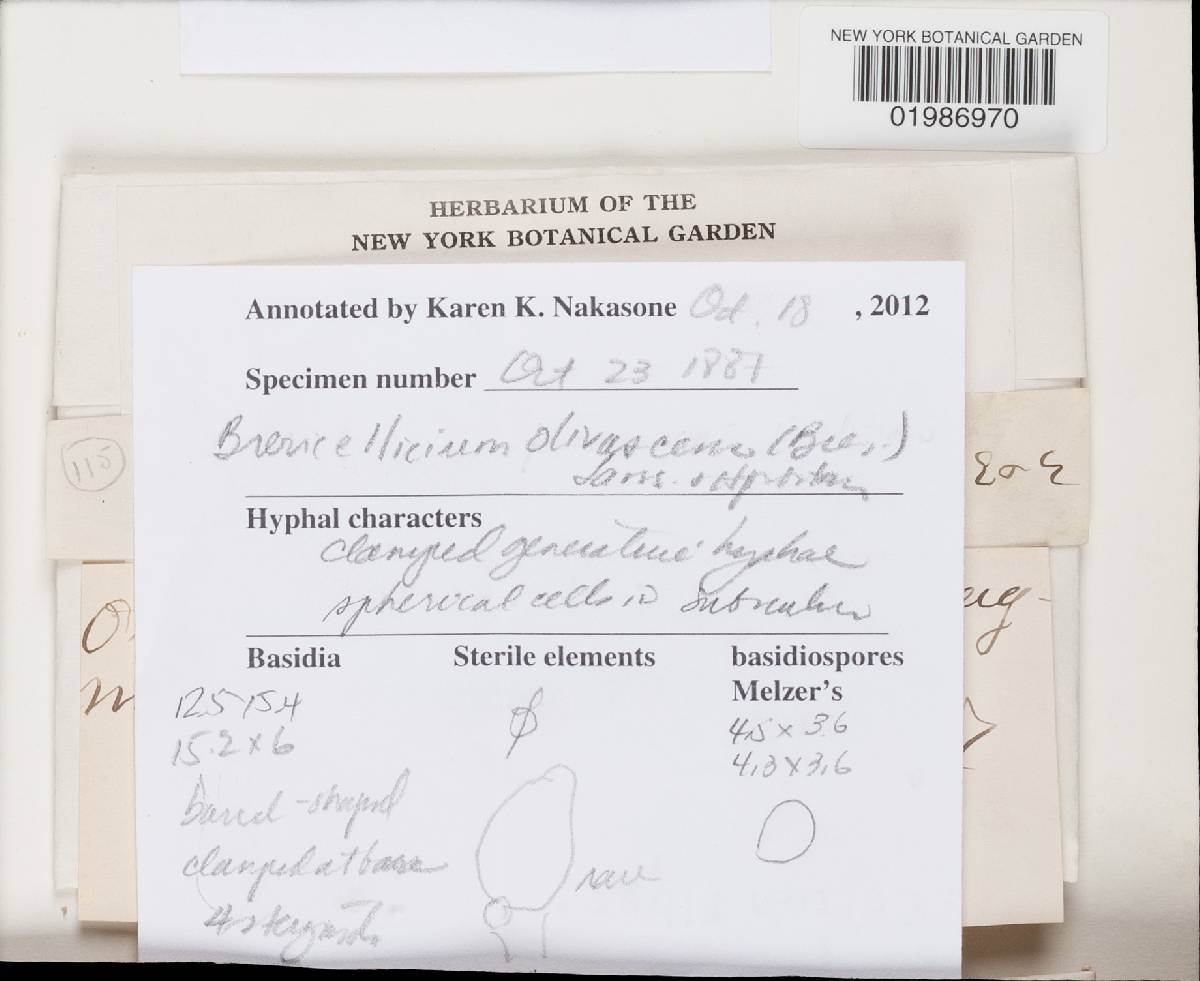 NEW YORK BOTANICAL GARDEN
01986970
HERBARIUM OF THE
NEW YORK BOTANICAL GARDEN
Annotated by Karen K. Nakasone Oct. 18 , 2012
Specimen number Oct 23 1887
Brevicellicium olivascens (Bres.)
Lars. & Hjortstam
115
E & E
Hyphal characters
clamped generative hyphae
spherical cells in subiculum
Basidia Sterile elements basidiospores
Melzer's
12.5 × 5.4 ϕ 4.5 × 3.6
15.2 × 6 4.3 × 3.6
barrel-shaped
clamped at base rare
4 sterigmata